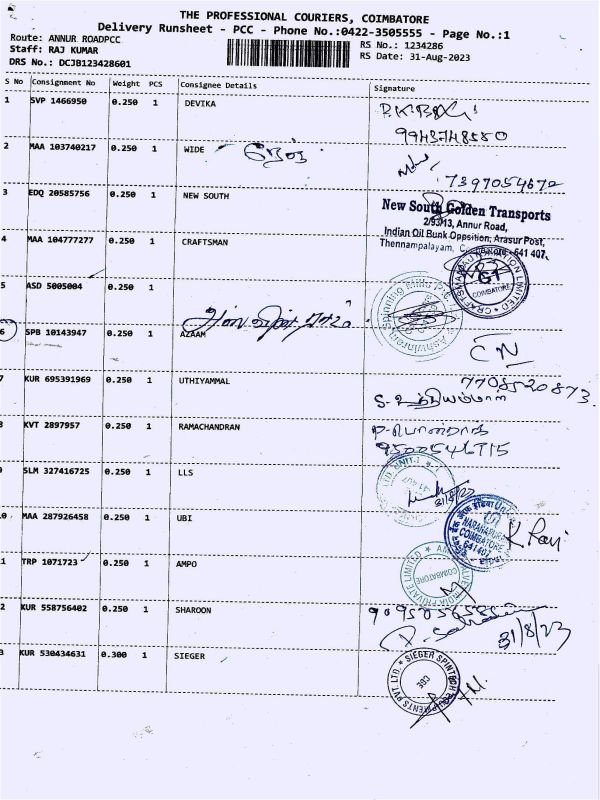 THE PROFESSIONAL COURIERS, COIMBATORE
Delivery Runsheet - PCC - Phone No.:0422-3505555 - Page No.:1
Route: ANNUR ROADPCC
RS No.: 1234286
Staff: RAJ KUMAR
RS Date: 31-Aug-2023
DRS No.: DCJB123428601
S No Consignment No Weight PCS Consignee Details Signature
1 SVP 1466950 0.250 1 DEVIKA
2 MAA 103740217 0.250 1 WIDE
7397054672
3 EDQ 20585756 0.250 1 NEW SOUTH
New South Golden Transports
2/93/13, Annur Road,
Indian Oil Bunk Opposition, Arasur Post,
Thennampalayam, Coimbatore - 641 407.
4 MAA 104777277 0.250 1 CRAFTSMAN
COIMBATORE
5 ASD 5005004 0.250 1
6 SPB 10143947 0.250 1 AZAAM
7708520873
7 KUR 695391969 0.250 1 UTHIYAMMAL
S. உத்தியம்மாள்
8 KVT 2897957 0.250 1 RAMACHANDRAN
9500546715
9 SLM 327416725 0.250 1 LLS
31/8/23
10 MAA 287926458 0.250 1 UBI
COIMBATORE
641407
K Ravi
11 TRP 1071723 0.250 1 AMPO
PRIVATE LIMITED
COIMBATORE
12 KUR 558756402 0.250 1 SHAROON
31/8/23
13 KUR 530434631 0.300 1 SIEGER
CBE